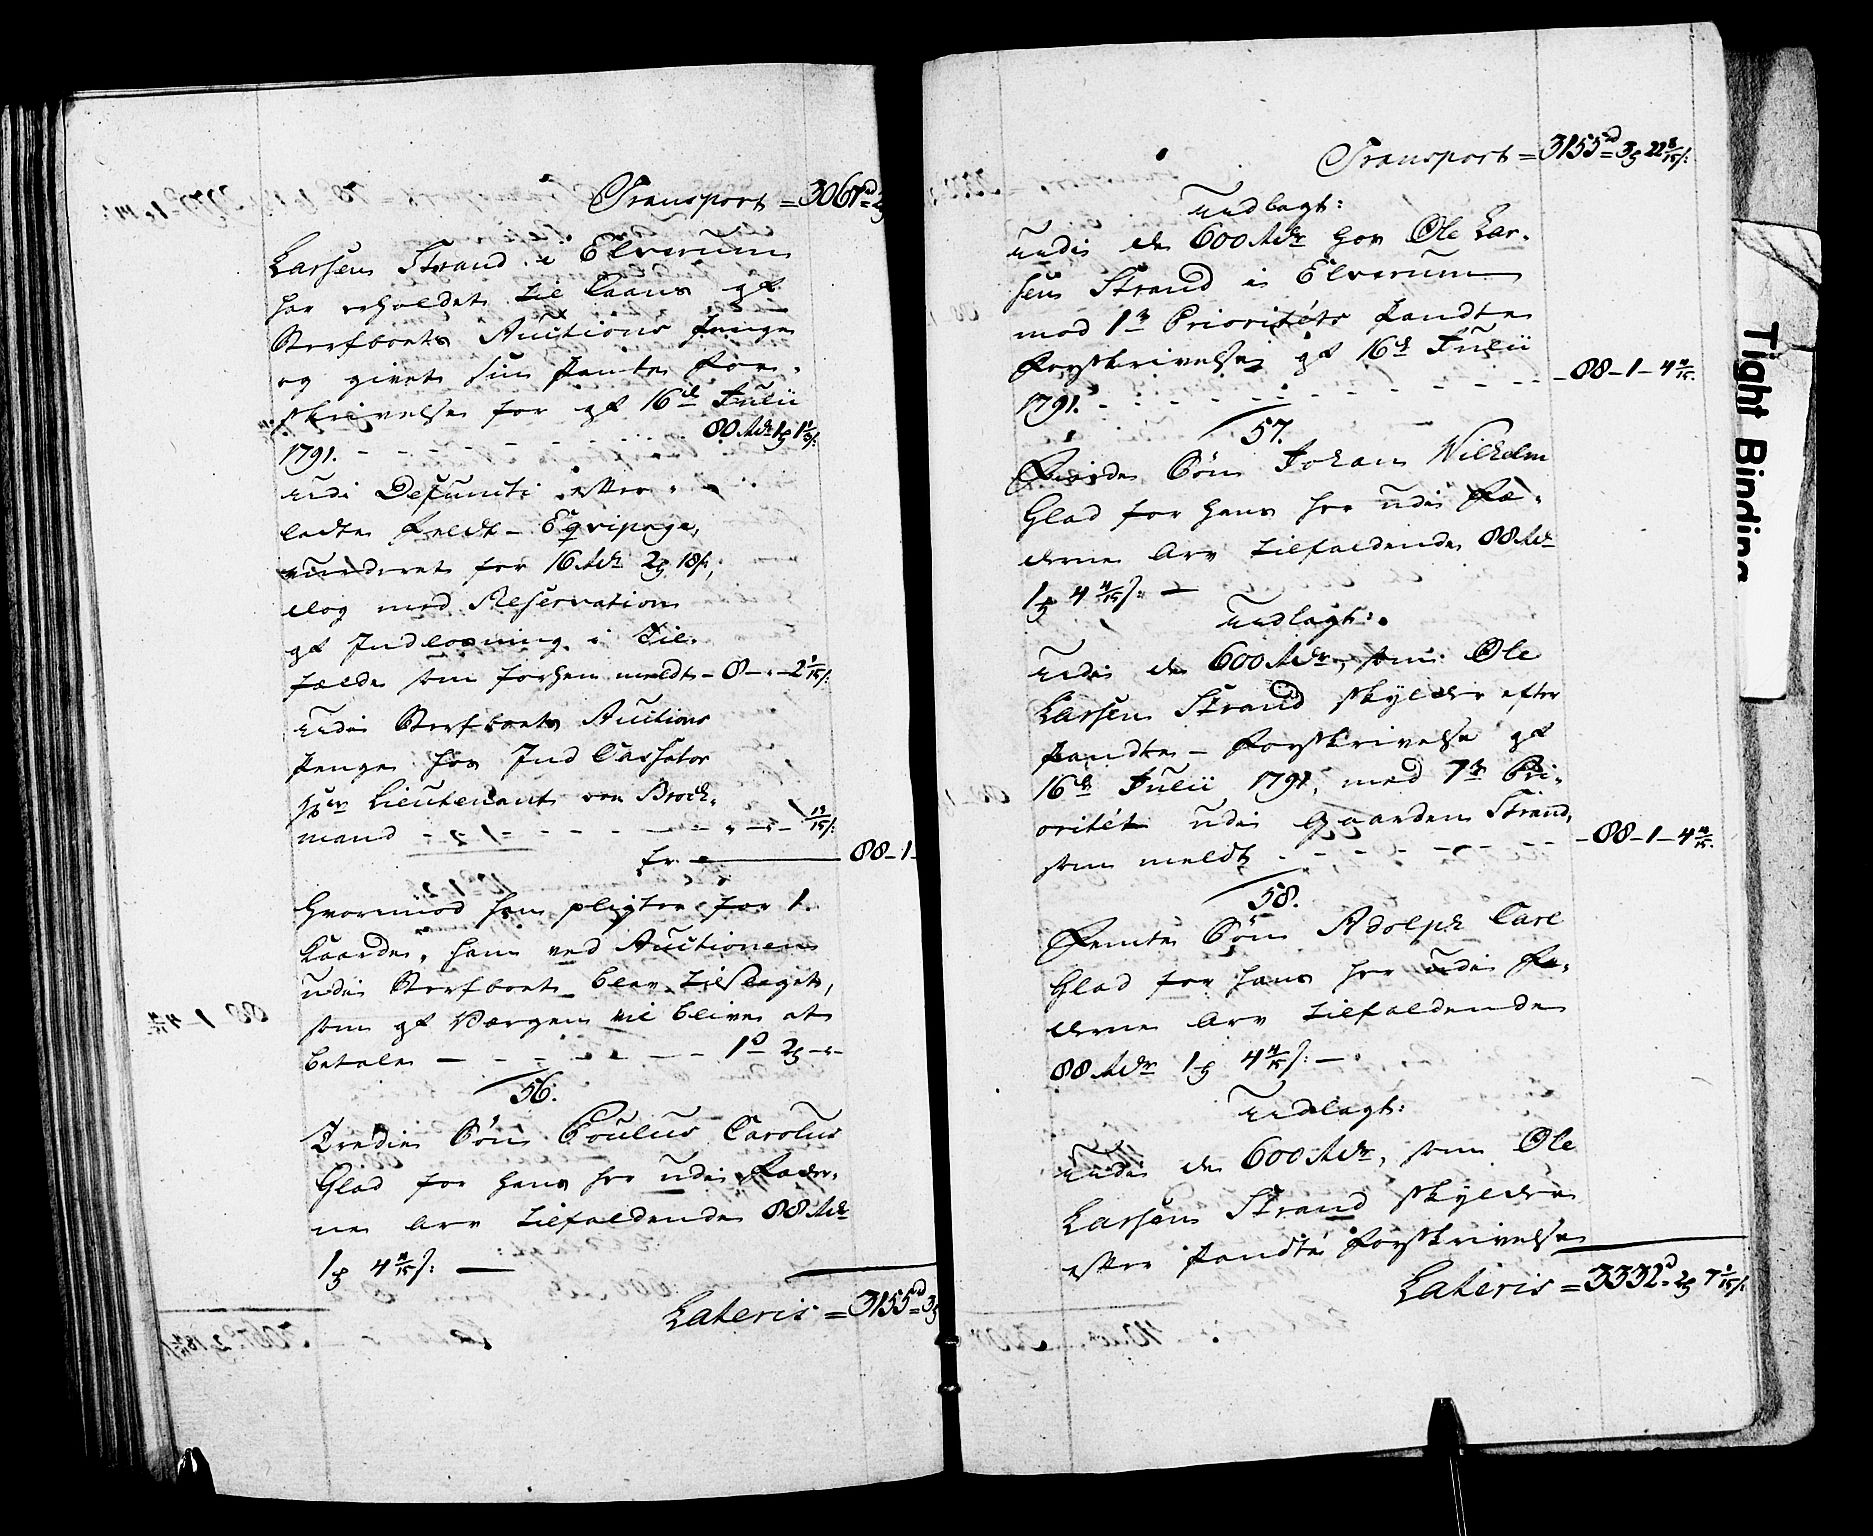 Transport = 3067
Larsen Strand i Elverum
har erholdet til Laans af
Sterfboets Auctions Penge
og givet sin Pante For-
skrivelse for af 16de Julii
1791. - - - - 80 Rdr 1 1/3 s:
udi Defuncti efter-
ladte Feldt-Eqvipage,
vurderet for 16 Rdr 2 18 s,
dog med Reservation
af Indløsning i Til-
fælde som forhen meldt - 8 - " - 2
udi Sterfboets Auctions
Penge hos Ind Cassator
Hr Lieutenant von Brock-
mand - - - -
Er 88 - 1 -
Hvorimod han pligter for 1
Kaarde, ham ved Auctionen
udi Sterfboet blev tilslaget,
som af Værgen vil blive at
betale - - - 1 2 - " -
56.
Tredie Søn Poulus Carolus
Glad for hans her udi Fæder-
ne Arv tilfaldende 88 Rdr
1 4 4/15 s: —
Lateris = 3155 3
Transport = 3155 3 22 8/15 s:
Udlagt:
udi de 600 Rdr hos Ole Lar-
sen Strand i Elverum
mod 1te Prioritets Pandte
Forskrivelse af 16de Julii
1791. - - - - 88 - 1 - 4 4/15
57.
Fierde Søn Johan Wilhelm
Glad for hans her udi Fæ-
derne Arv tilfaldende 88 Rdr
1 4 4/15 s: —
Udlagt:
udi de 600 Rdr, som Ole
Larsen Strand skylder efter
Pandte-Forskrivelse af
16de Julii 1791, med 1te Pri-
oritet udi Gaarden Strand,
som meldt - - - - 88 - 1 - 4 4/15
58.
Femte Søn Adolph Carl
Glad for hans her udi Fæ-
derne Arv tilfaldende
88 Rdr 1 4 4/15 s: —
Udlagt:
udi de 600 Rdr, som Ole
Larsen Strand skylder
efter Pandte Forskrivelse
Lateris = 3332 2 7 1/15 s:
Tight Binding